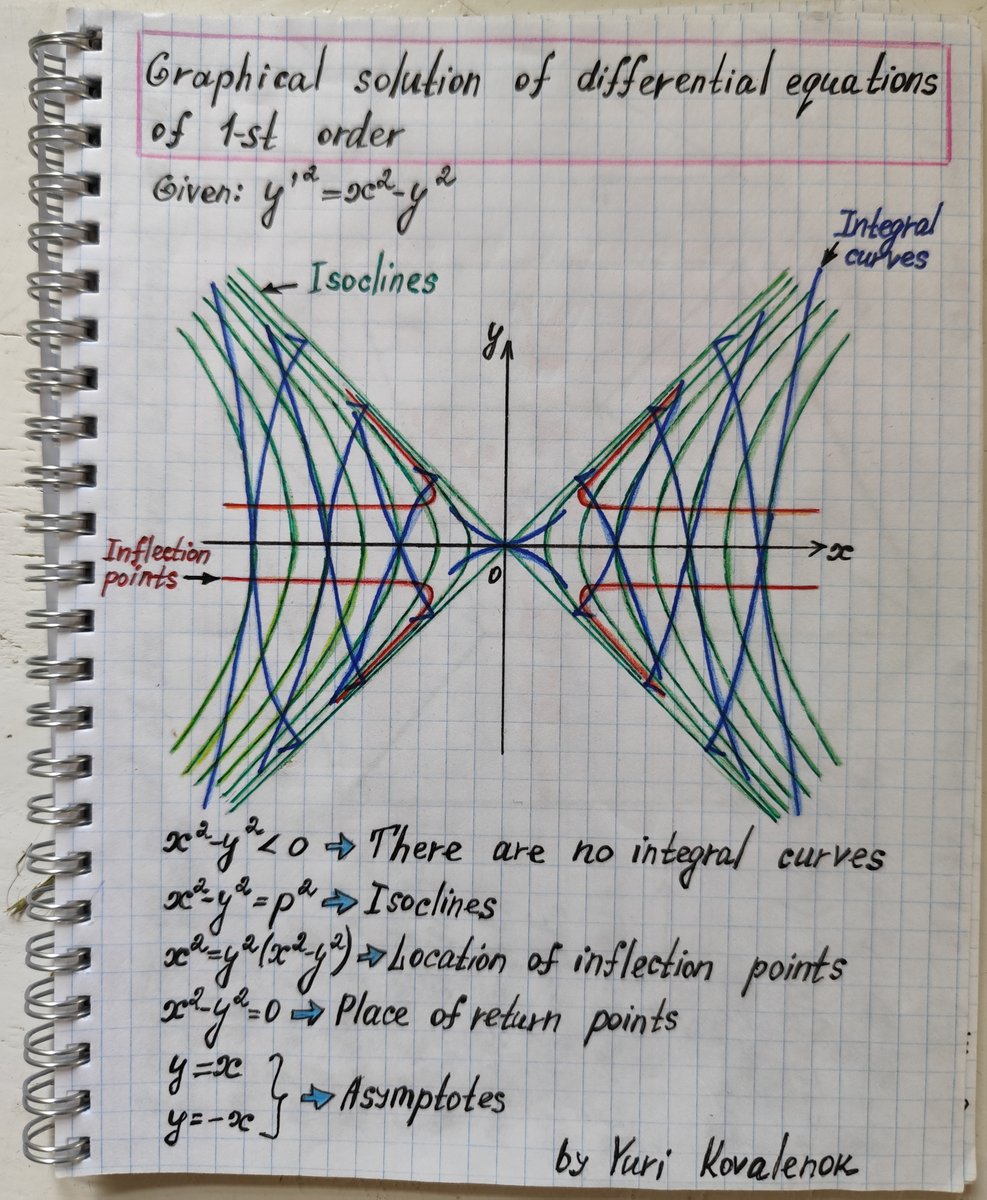 Graphical solution of differential equations
of 1-st order
Given: y'² = x² - y²
Integral
curves
Isoclines
y
x
0
Inflection
points
x² - y² < 0 ⇒ There are no integral curves
x² - y² = p² ⇒ Isoclines
x² = y²(x² - y²) ⇒ Location of inflection points
x² - y² = 0 ⇒ Place of return points
y = x
y = -x } ⇒ Asymptotes
by Yuri Kovalenok